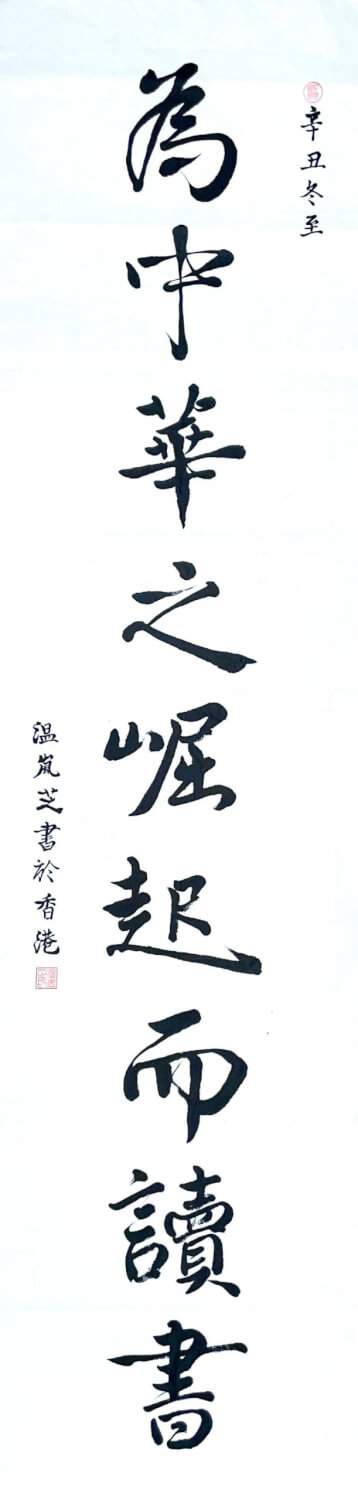 辛丑冬至
為中華之崛起而讀書
温嵐芝書於香港